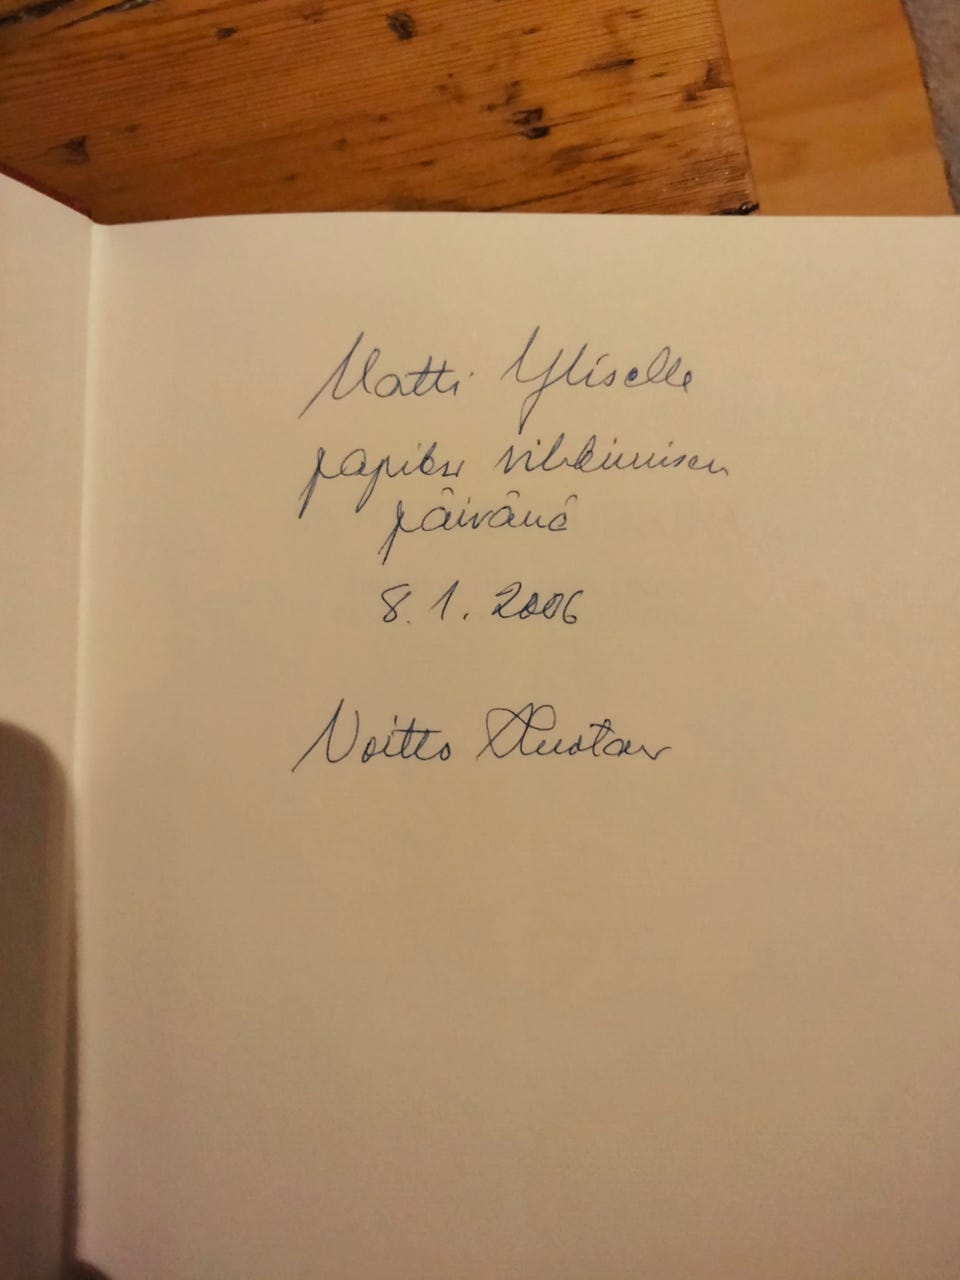 Matti Yliselle
papiksi vihkimisen
päivänä
8.1.2006
Voitto Huotari